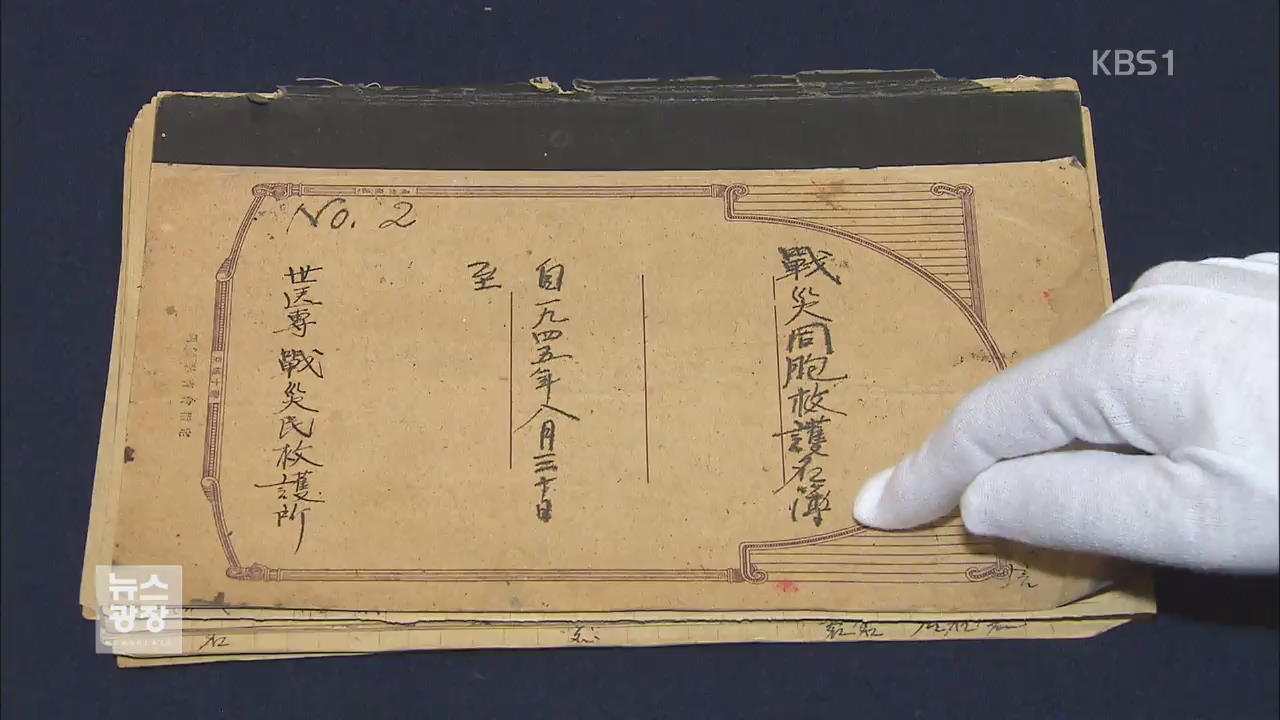 KBS1
No. 2
戰災同胞救護名簿
自一九四五年八月二十日
至
世医專 戰災民救護所
뉴스
광장